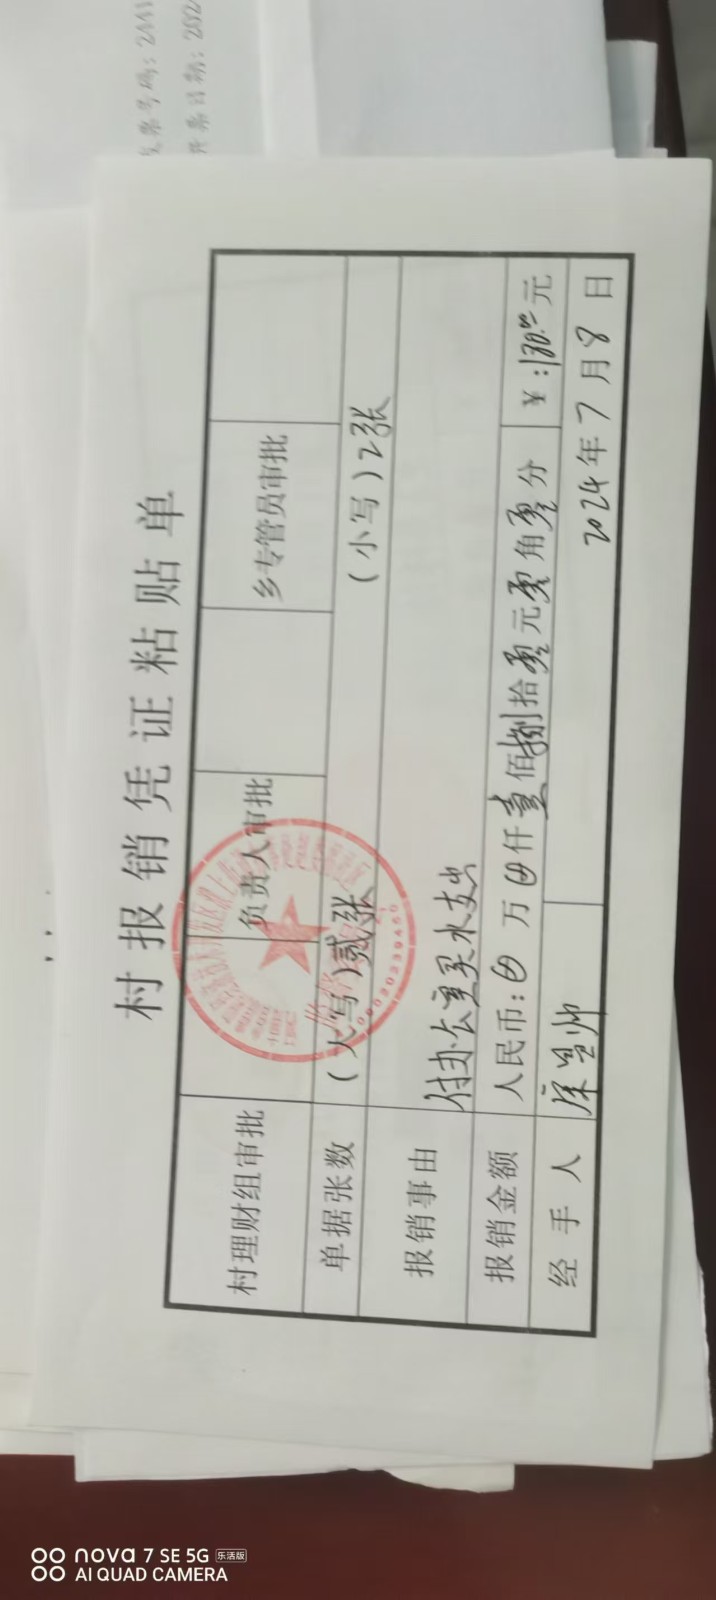 发票号码：2441
开票日期：202
村报销凭证粘贴单
村理财组审批 负责人审批 乡专管员审批
单据张数 （大写）贰张 （小写）2张
报销事由 付办公室买水支出
报销金额 人民币：⊕万⊕仟壹佰捌拾零元零角零分 ￥：180.00元
经手人 2024年7月8日
00020239450
nova 7 SE 5G 乐活版
AI QUAD CAMERA